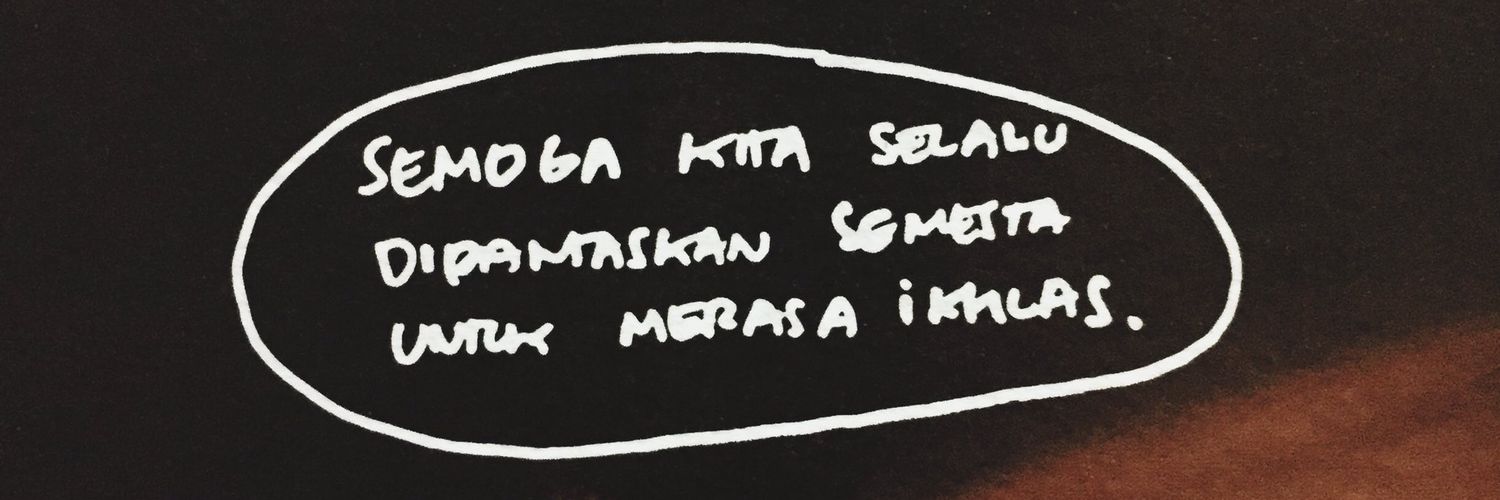 SEMOGA KITA SELALU
DIPANTASKAN SEMESTA
UNTUK MERASA iKHLAS.